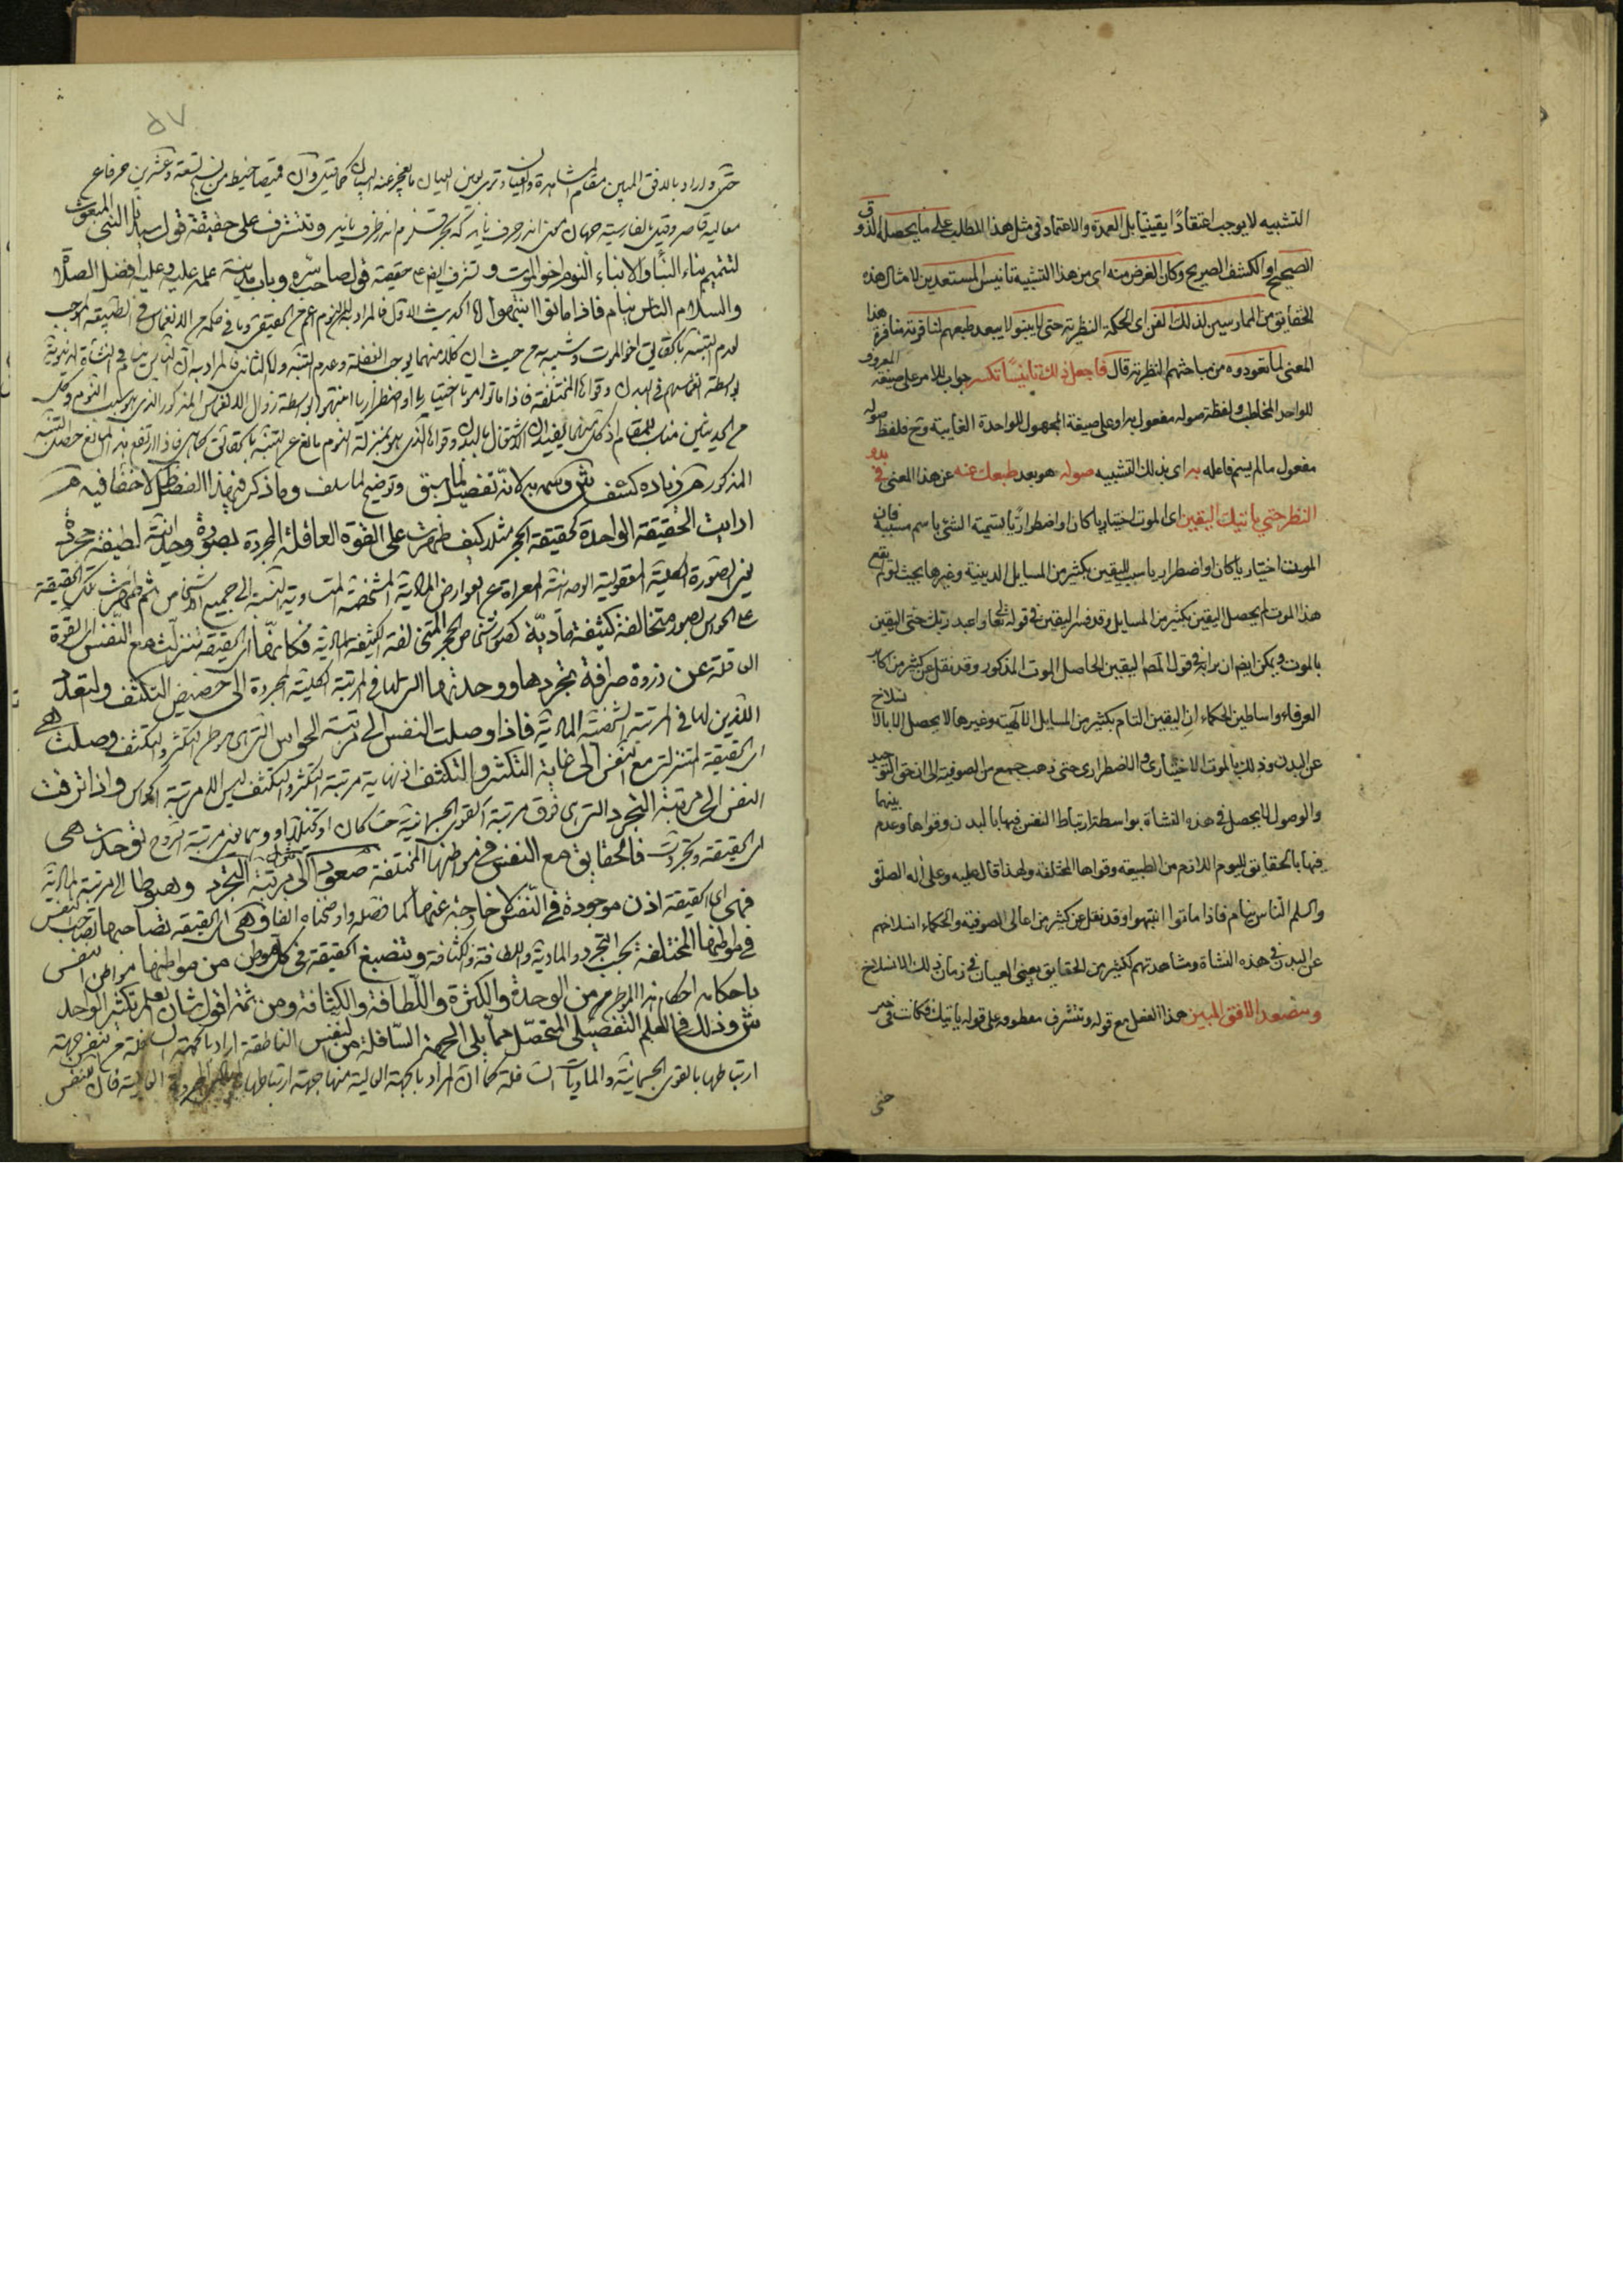 التشبيه لا يوجب اعتقادًا يقينيا بل العمدة والاعتماد في مثل هذا المطلب على ما يحصله الذوق
الصحيح او الكشف الصريح وكان الغرض منه اى من هذا التشبيه تانيس المستعدين لامثال هذه
الحقايق من الممارسين لذلك الفن اى الحكمة النظرية حتى لا ينبو لا يبعد طبعهم لنا قوته منافرة هذا
المعنى لما تعودوه من مباحثهم النظرية قال فاجعل ذلك تانيسًا تكسر جواب للامر على صيغة المعروف
للواحد المخاطب ولفظة صوله مفعول به او على صيغة المجهول للواحدة الغايبة وح فلفظ صوله
مفعول ما لم يسم فاعله به اى بذلك التشبيه صوله هو بعد طبعك عنه عن هذا المعنى في بدو
النظر حتي ياتيك اليقين اى الموت اختياريا كان او اضطراريًا تسمية الشئ باسم مسببه فان
الموت اختياريا كان او اضطراريا سبب لليقين بكثير من المسايل الدينية وغيرها بحيث لو لم يقع
هذا الموت لم يحصل اليقين بكثير من المسايل وقد فسر اليقين في قوله تعالى واعبد ربك حتى ياتيك اليقين
بالموت ويمكن ايضا ان يراد في قول المص اليقين الحاصل الموت المذكور وقد نقل عن كثير من اكابر
العرفاء واساطين الحكماء ان اليقين التام بكثير من المسايل الالهية وغيرها لا يحصل الا بالانسلاخ
عن البدن وذلك بالموت الاختيارى و الاضطرارى حتى ذهب جمع من الصوفية الى ان حق التوحيد
والوصول لا يحصل في هذه النشاة بواسطة ارتباط النفس فيها بالبدن وقواها وعدم بينهما
فيها بالحقايق للنوم اللازم من الطبيعة وقواها المختلفة ولهذا قال عليه وعلى اله الصلوة
والسلم الناس نيام فاذا ماتوا انتبهوا وقد نقل عن كثير من اعالى الصوفية والحكماء انسلاخهم
عن البدن في هذه النشاة ومشاهدتهم لكثير من الحقايق بعين العيان في زمان ذلك الانسلاخ
وستصعد الافق المبين هذا الفعل مع قوله وتشرف معطوف على قوله ياتيك فكانت في خبر
حتى
٥٧
حتى واراد بالافق المبين مقام المشاهدة والعيان وترى بعين العيان ما يعجز عنه البيان كما قيل وان قميصا خيط من نسج تسعة وعشرين حرفا عن
معاليه قاصر وقيل بالفارسية وتشرف على حقيقة قول سيدنا النبى المبعوث
لتتميم بناء النبأ والانباء النوم اخو الموت و تشرف ايضا على حقيقة قول صاحب سره وباب مدينة علمه عليه وعليه افضل الصلاة
والسلام الناس نيام فاذا ماتوا انتبهوا اما الحديث الاول فالمراد بالنوم
لعدم التنبه بالحقايق اخو الموت وشبيه به من حيث ان كلا منهما يوجب الغفلة وعدم التنبه واما الثانى فالمراد به ان الناس نيام في النشاة الدنيوية
بواسطة انغماسهم في البدن وقواها المختلفة فاذا ماتوا موتا اختياريا او اضطراريا انتبهوا بواسطة زوال الانغماس المذكور الذى هو سبب النوم وكل
من الحديثين مناسب للمقام
المذكور م زيادة كشف ش وسمه به لانه تفصيل لما سبق وتوضيح لما سلف وما ذكر فيه بهذا التفصيل لا خفا فيه م
ارايت الحقيقة الواحدة كحقيقة الحجر مثلا كيف ظهرت على القوة العاقلة المجردة بصورة وحدانية لطيفة مجردة
يعنى الصورة الكلية المعقولية الوحدانية المعراة عن العوارض المادية المشخصة المتساوية النسبة الى جميع الاشخاص ثم ظهرت تلك الحقيقة
على الحواس بصور متخالفة كثيفة مادية كصور اشخاص الحجر المتخالفة الكثيفة المادية فكانها اى الحقيقة تنزلت مع النفس اى القوة
العاقلة عن ذروة صرافة تجردها ووحدتها التى لها في المرتبة الكلية المجردة الى حضيض التكثف والتعدد
اللذين لها في المرتبة الشخصية المادية فاذا وصلت النفس الى مرتبة الحواس التى هى موطن التكثر والتكثف وصلت هى
اى الحقيقة المتنزلة مع النفس الى غاية التكثر والتكثف اذ نهاية مرتبة التكثر والتكثف ليس الا مرتبة الحواس واذا ترقت
النفس الى مرتبة التجرد التى هى فوق مرتبة القوى الجسمانية توحدت هى
اى الحقيقة وتجردت فالحقايق مع النفس في مواطنها المختلفة صعودا الى مرتبة التجرد وهبوطا الى مرتبة المادية
فهى اى الحقيقة اذن موجودة في النفس لا خارجة عنها كما فصله واوضحناه انفا وهى اى الحقيقة تصاحبها تصاحب النفس
في مواطنها المختلفة بحسب التجرد والمادية واللطافة والكثافة وتنصبغ الحقيقة في كل موطن من مواطنها مواطن النفس
باحكام احكام هذا الموطن من الوحدة والكثرة واللطافة والكثافة ومن ثمة اقول شان العلم تكثير الواحد
ش وذلك في العلم التفصيلى المتحصل مما يلى الجهة السافلة من النفس الناطقة اراد بالجهة السافلة من النفس جهة
ارتباطها بالقوى الجسمانية والماديات السافلة كما ان المراد بالجهة العالية منها جهة ارتباطها العالية فان للنفس